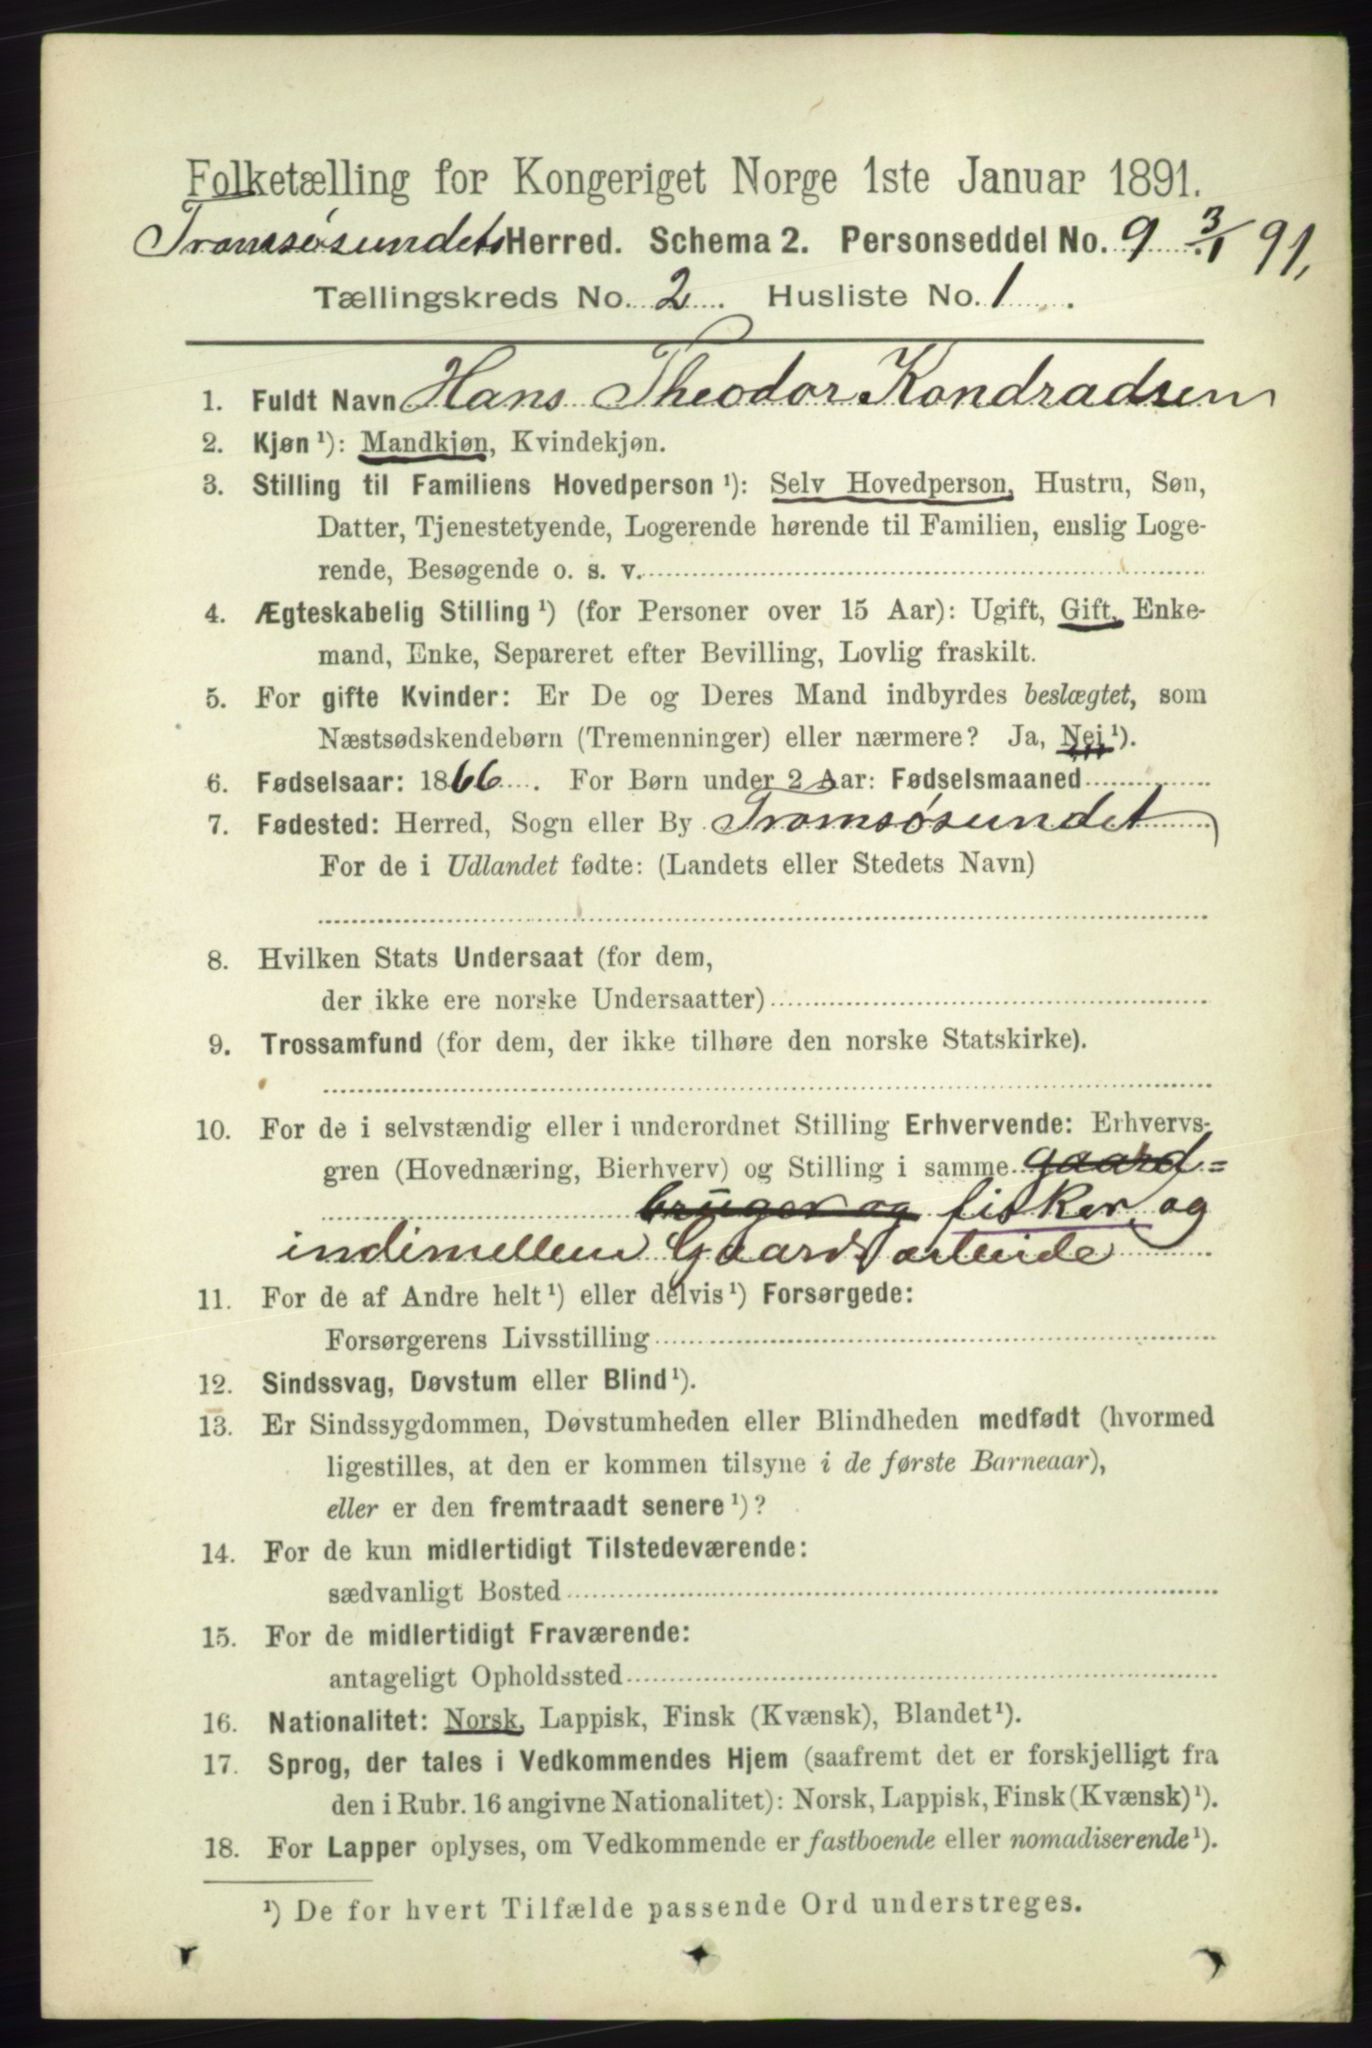 Folketælling for Kongeriget Norge 1ste Januar 1891.
Tromsøsundets Herred. Schema 2. Personseddel No. 9 3/1 91,
Tællingskreds No. 2 Husliste No. 1
1. Fuldt Navn Hans Theodor Kondradsen
2. Kjøn ¹): Mandkjøn, Kvindekjøn.
3. Stilling til Familiens Hovedperson ¹): Selv Hovedperson, Hustru, Søn,
Datter, Tjenestetyende, Logerende hørende til Familien, enslig Loge-
rende, Besøgende o. s. v.
4. Ægteskabelig Stilling ¹) (for Personer over 15 Aar): Ugift, Gift, Enke-
mand, Enke, Separeret efter Bevilling, Lovlig fraskilt.
5. For gifte Kvinder: Er De og Deres Mand indbyrdes beslægtet, som
Næstsødskendebørn (Tremenninger) eller nærmere? Ja, Nei ¹).
6. Fødselsaar: 1866. For Børn under 2 Aar: Fødselsmaaned
7. Fødested: Herred, Sogn eller By Tromsøsundet
For de i Udlandet fødte: (Landets eller Stedets Navn)
8. Hvilken Stats Undersaat (for dem,
der ikke ere norske Undersaatter)
9. Trossamfund (for dem, der ikke tilhøre den norske Statskirke).
10. For de i selvstændig eller i underordnet Stilling Erhvervende: Erhvervs-
gren (Hovednæring, Bierhverv) og Stilling i samme gaard=
bruger og fisker, og
indimellem Gaardsarbeide
11. For de af Andre helt ¹) eller delvis ¹) Forsørgede:
Forsørgerens Livsstilling
12. Sindssvag, Døvstum eller Blind ¹).
13. Er Sindssygdommen, Døvstumheden eller Blindheden medfødt (hvormed
ligestilles, at den er kommen tilsyne i de første Barneaar),
eller er den fremtraadt senere ¹)?
14. For de kun midlertidigt Tilstedeværende:
sædvanligt Bosted
15. For de midlertidigt Fraværende:
antageligt Opholdssted
16. Nationalitet: Norsk, Lappisk, Finsk (Kvænsk), Blandet ¹).
17. Sprog, der tales i Vedkommendes Hjem (saafremt det er forskjelligt fra
den i Rubr. 16 angivne Nationalitet): Norsk, Lappisk, Finsk (Kvænsk) ¹).
18. For Lapper oplyses, om Vedkommende er fastboende eller nomadiserende ¹).
¹) De for hvert Tilfælde passende Ord understreges.